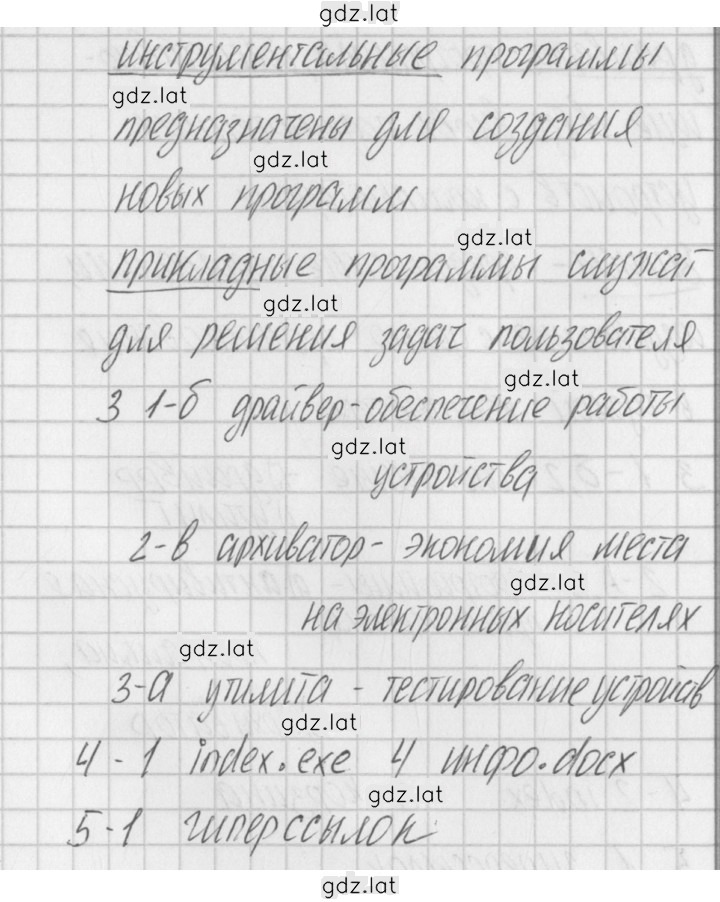 gdz.lat
инструментальные программы
gdz.lat
предназначены для создания
gdz.lat
новых программ
gdz.lat
прикладные программы служат
gdz.lat
для решения задач пользователя
gdz.lat
3 1-б драйвер-обеспечение работы
gdz.lat
устройства
2-в архиватор- экономия места
gdz.lat
на электронных носителях
gdz.lat
3-а утилита - тестирование устройств
gdz.lat
4-1 index.exe 4 инфо.docx
gdz.lat
5-1 гиперссылок
gdz.lat